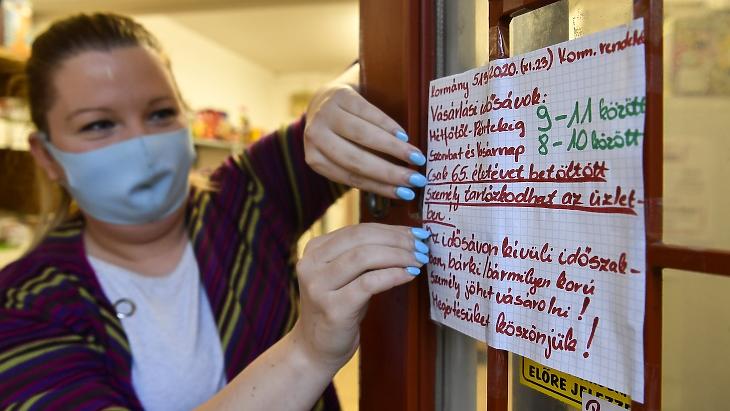 Kormány 519/2020. (XI.23) Korm. rendelet
Vásárlási idősávok:
Hétfőtől-Péntekig 9-11 között
Szombat és Vasárnap 8-10 között
Csak 65. életévet betöltött
személy tartózkodhat az üzlet-
ben!
Az idősávon kívüli időszak-
ban, bárki/bármilyen korú
személy jöhet vásárolni!
Megértésüket köszönjük!
ELŐRE JELEZZ